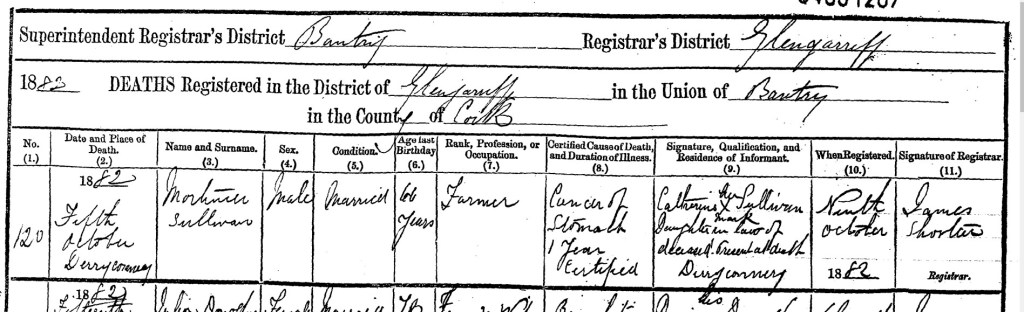 Superintendent Registrar's District Bantry Registrar's District Glengarriff
1882 DEATHS Registered in the District of Glengarriff in the Union of Bantry
in the County of Cork
No. (1.) Date and Place of Death. (2.) Name and Surname. (3.) Sex. (4.) Condition. (5.) Age last Birthday (6.) Rank, Profession, or Occupation. (7.) Certified Cause of Death, and Duration of Illness. (8.) Signature, Qualification, and Residence of Informant. (9.) When Registered. (10.) Signature of Registrar. (11.)
120
1882
Fifth
October
Derryconnery
Mortimer
Sullivan
Male
Married
66
Years
Farmer
Cancer of
Stomach
1 Year
Certified
Catherine her X Sullivan
mark
Daughter in law of
deceased. Present at death
Derryconnery
Ninth
October
1882
James
Shorten
Registrar.
1882
Fifteenth